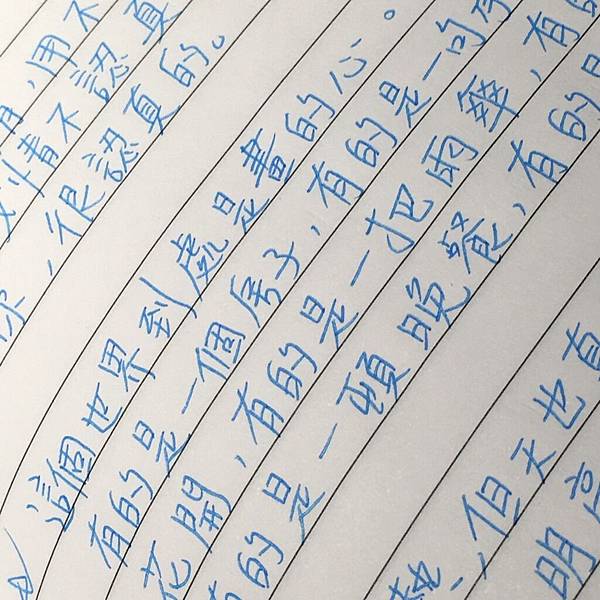 用不
情不認真
，很認真的。
這個世界到處是畫的心。
有的是一個房子，有的是一句
花開，有的是一把雨傘，有
的是一頓晚餐，有的
但天也真
明